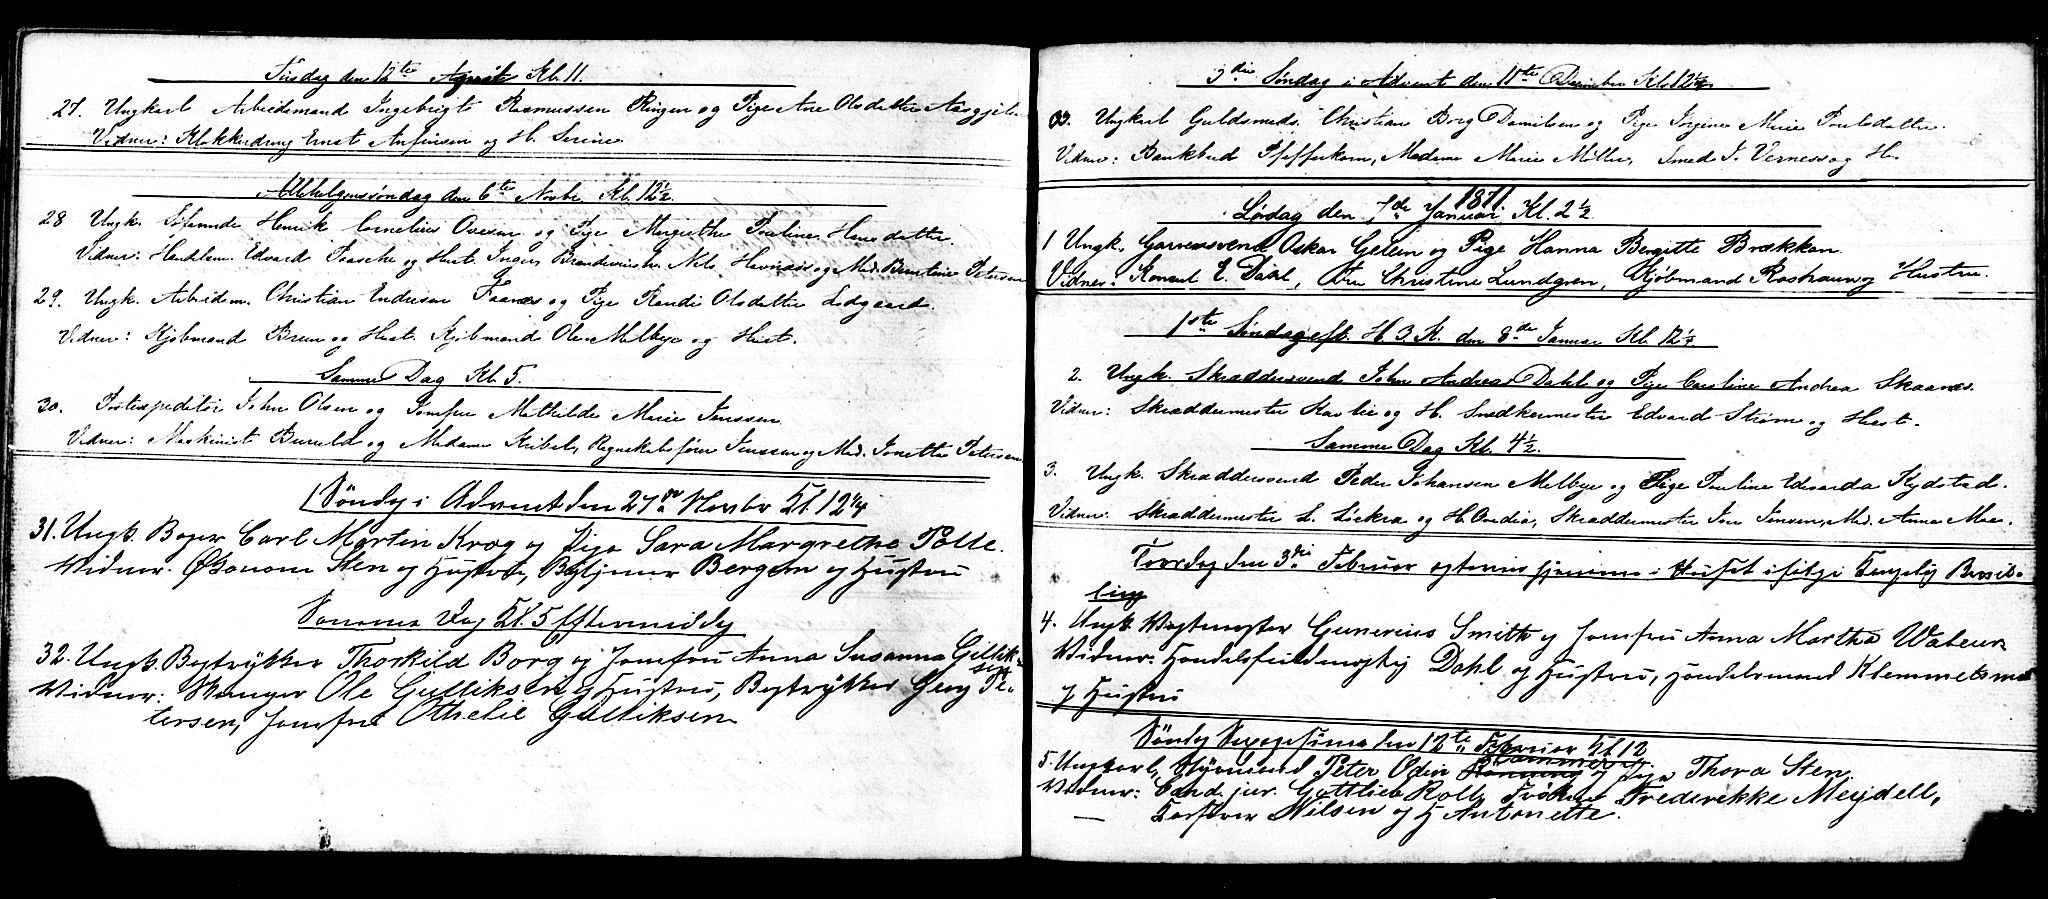 Tirsdag den 12te April Kl. 11.
27. Ungkarl Arbeidsmand Ingebrigt Rasmussen Ringen og Pige Ane Olsdatter
Vidner: Klokkedreng Ernst Anfinsen og H. Serine
Allehelgenssøndag den 6te Novbr Kl. 12½.
28 Ungk. Søfarende Henrik Cornelius Ovesen og Pige Margrethe Pauline Hansdatter.
Vidner: Handelsm. Edvard Paasche og Hust. Inger, Brændevinsbr. Nels Havnæss og Mad. Berntine Petersen
29. Ungk. Arbeidsm. Christian Endresen Faanes og Pige Randi Olsdatter Ledgaard.
Vidner: Kjøbmand Bruun og Hust. Kjøbmand Ole Melbye og Hust.
Samme Dag Kl. 5.
30. Postexpeditør John Olsen og Jomfru Mathilde Marie Jenssen.
Vidner: Maskinist Burrild og Madame Kribel, Regnskabsfører Jenssen og Mad. Jonette Petersen
1 Søndag i Advent den 27de Novbr Kl. 12¼
31. Ungk. Bager Carl Martin Krog og Pige Sara Margrethe Polde.
Vidner. Økonom Sten og Hustru, Bergen og Hustru
Samme Dag Kl. 5 Eftermiddag
32. Ungk. Bogtrykker Thorkild Borg og Jomfru Anna Susanna Gullik-
sen
Vidner: Ole Gulliksen og Hustru, Bogtrykker Georg Pe-
tersen, Jomfru Othelie Gulliksen
3die Søndag i Advent den 11te December Kl. 12½
33. Ungkarl Guldsmeds. Christian Borg Danielsen og Pige Jørgine Marie Poulsdatter.
Vidner: Bankbud Pfefferkorn, Madame Marie Møller, Smed J. Verness og H.
1871.
Lørdag den 7de Januari Kl. 2½.
1 Ungk. Garversvend Oskar Gellein og Pige Hanna Bergitte Brækkan.
Vidner: Konsul E. Dahl, Christine Lundgren, Kjøbmand Roshauw og Hustru.
1ste Søndag eft. H. 3. K. den 8de Januar Kl. 12½
2. Ungk. Skræddersvend John Andreas Dahl og Pige Caroline Andrea Skaanes.
Vidner: Skræddermester Lie og H. Snedkermester Edvard Strøm og Hust.
Samme Dag Kl. 4½.
3. Ungk. Skræddersvend Peder Johansen Melbye og Pige Pauline Edvarda Rydstad.
Vidner: Skræddermester L. Lickra og H. Ovedia, Skræddermester Jensen, Mad. Anna Moe.
den 3die Februar hjemme i Huset ifølge Kongelig Bevil-
ling
4. Ungk. Gunerius Smith og Jomfru Anna Martha
Vidner: Handelsfuldmægtig Dahl og Hustru, Handelsmand Klemmetsmo
og Hustru
Søndag Sexagesima den 12te Februar Kl. 12
5. Ungkarl, Styrmand Peter Odin og Pige Thora Sten.
Vidner: Cand. jur. Gottlieb Roll, Frøken Fredrikke Meydell,
Nilsen og H. Antonette.